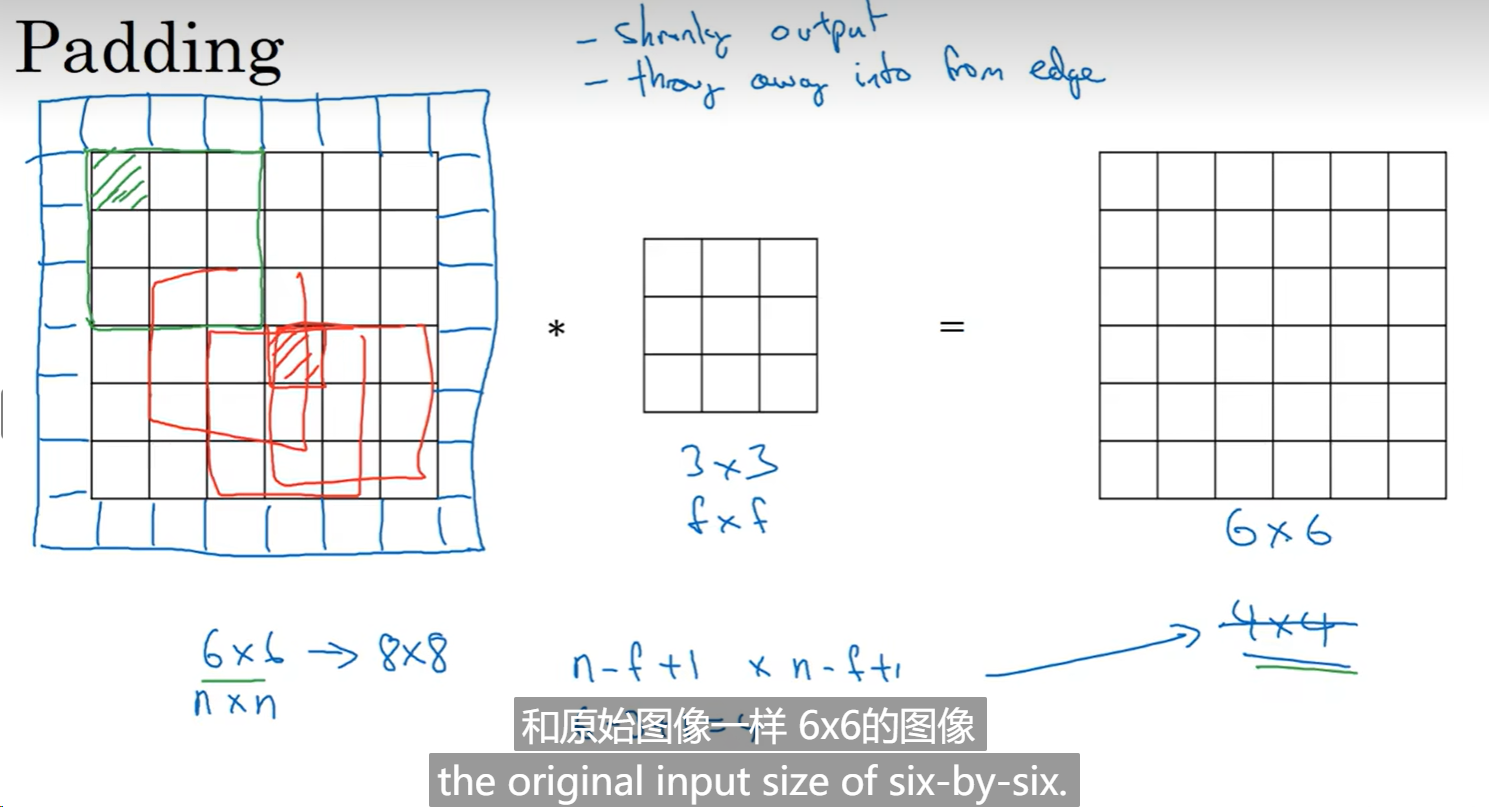 Padding
- shrinky output
- throw away info from edge
*
=
3x3
fxf
6x6
6x6 → 8x8
nxn
n-f+1 x n-f+1
4x4
和原始图像一样 6x6的图像
the original input size of six-by-six.